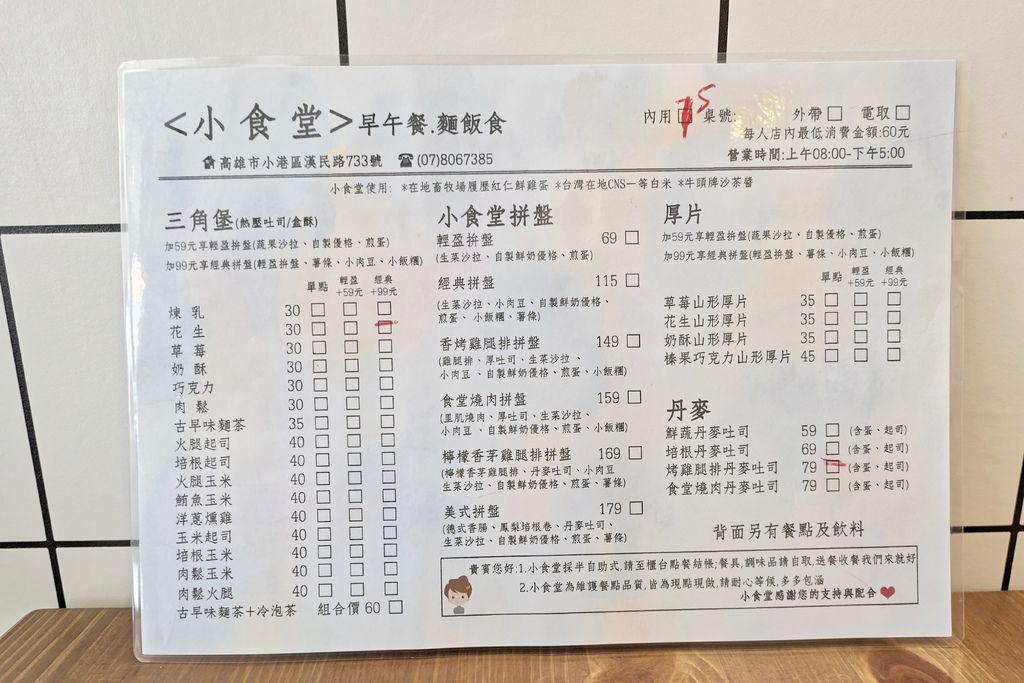 <小食堂>早午餐.麵飯食
內用 75 桌號: 外帶 電取
每人店內最低消費金額:60元
高雄市小港區漢民路733號 (07)8067385
營業時間:上午08:00-下午5:00
小食堂使用: *在地畜牧場履歷紅仁鮮雞蛋 *台灣在地CNS一等白米 *牛頭牌沙茶醬
三角堡(熱壓吐司/盒酥)
加59元享輕盈拚盤(蔬果沙拉、自製優格、煎蛋)
加99元享經典拼盤(輕盈拚盤、薯條、小肉豆、小飯糰)
單點 輕盈+59元 經典+99元
煉乳 30
花生 30
草莓 30
奶酥 30
巧克力 30
肉鬆 30
古早味麵茶 35
火腿起司 40
培根起司 40
火腿玉米 40
鮪魚玉米 40
洋蔥燻雞 40
玉米起司 40
培根玉米 40
肉鬆玉米 40
肉鬆火腿 40
古早味麵茶+冷泡茶 組合價 60
小食堂拼盤
輕盈拚盤 69
(生菜沙拉、自製鮮奶優格、煎蛋)
經典拼盤 115
(生菜沙拉、小肉豆、自製鮮奶優格、
煎蛋、小飯糰、薯條)
香烤雞腿排拼盤 149
(雞腿排、厚吐司、生菜沙拉、
小肉豆、自製鮮奶優格、煎蛋、小飯糰)
食堂燒肉拼盤 159
(里肌燒肉、厚吐司、生菜沙拉、
小肉豆、自製鮮奶優格、煎蛋、小飯糰)
檸檬香茅雞腿排拼盤 169
(檸檬香茅雞腿排、丹麥吐司、小肉豆
生菜沙拉、自製鮮奶優格、煎蛋、薯條)
美式拼盤 179
(德式香腸、鳳梨培根卷、丹麥吐司、
生菜沙拉、自製鮮奶優格、煎蛋、薯條)
厚片
加59元享輕盈拚盤(蔬果沙拉、自製優格、煎蛋)
加99元享經典拼盤(輕盈拚盤、薯條、小肉豆、小飯糰)
單點 輕盈+59元 經典+99元
草莓山形厚片 35
花生山形厚片 35
奶酥山形厚片 35
榛果巧克力山形厚片 45
丹麥
鮮蔬丹麥吐司 59 (含蛋、起司)
培根丹麥吐司 69 (含蛋、起司)
烤雞腿排丹麥吐司 79 (含蛋、起司)
食堂燒肉丹麥吐司 79 (含蛋、起司)
背面另有餐點及飲料
貴賓您好:1.小食堂採半自助式,請至櫃台點餐結帳;餐具,調味品請自取,送餐收餐我們來就好
2.小食堂為維護餐點品質,皆為現點現做,請耐心等候,多多包涵
小食堂感謝您的支持與配合